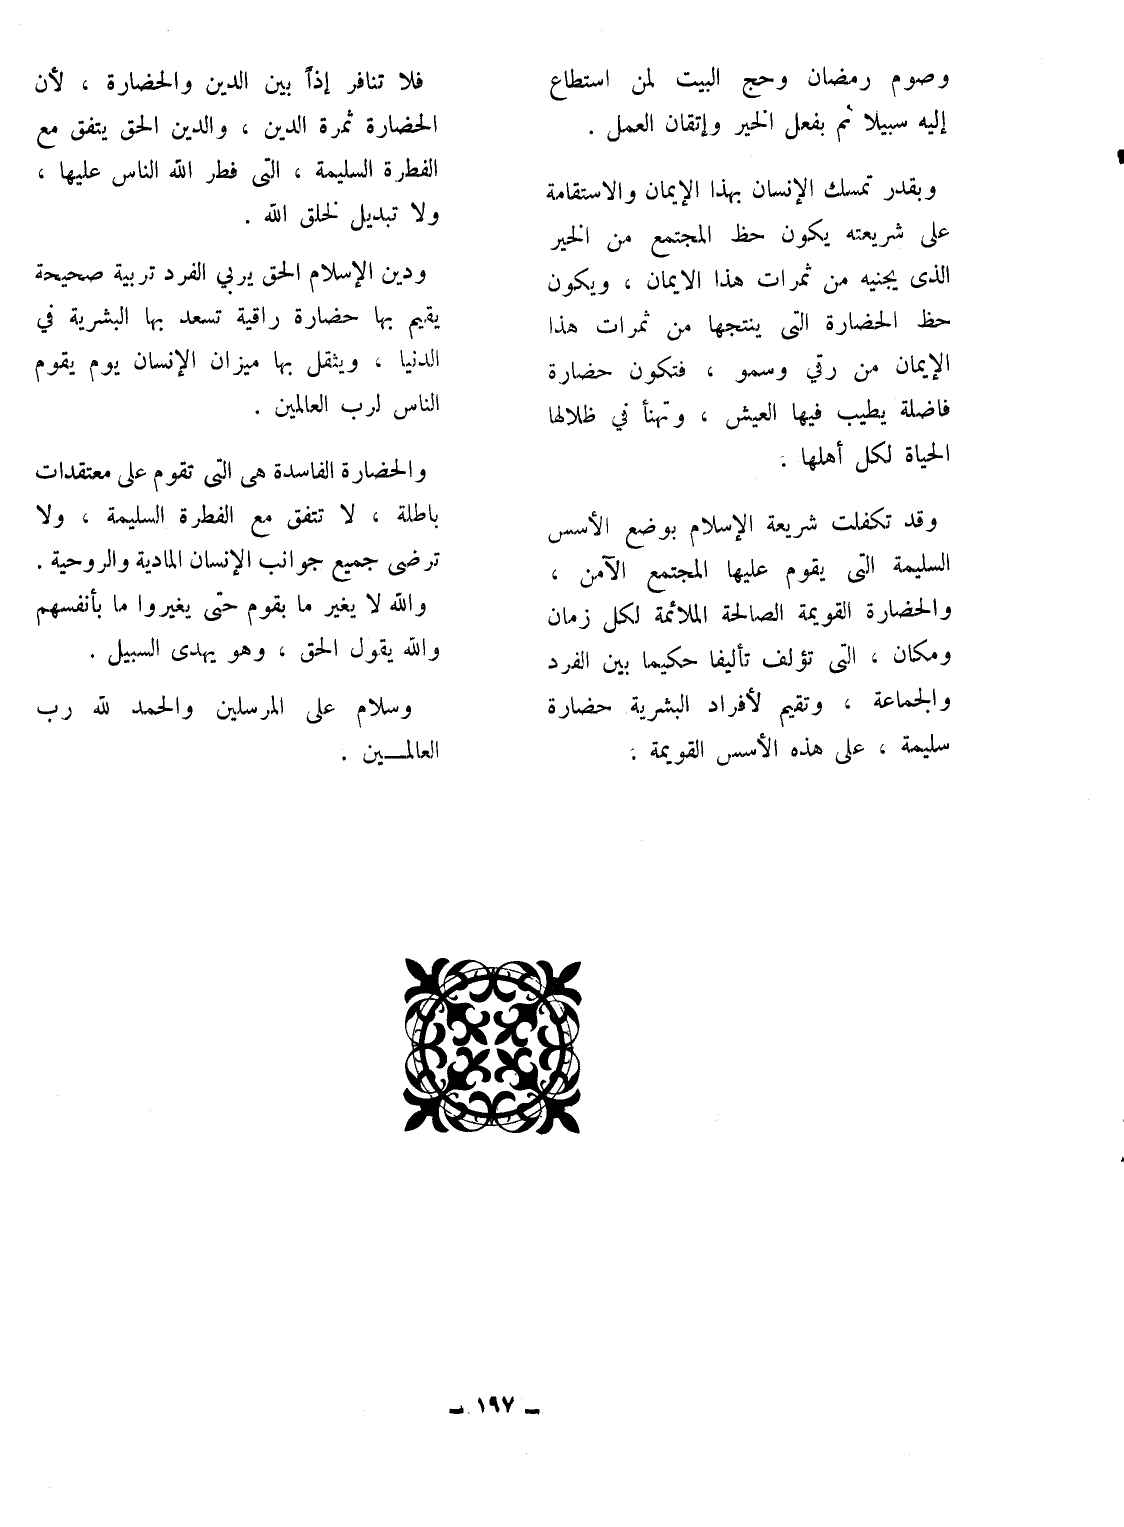 وصوم رمضان وحج البيت لمن استطاع
إليه سبيلا ثم بفعل الخير وإتقان العمل .
وبقدر تمسك الإنسان بهذا الإيمان والاستقامة
على شريعته يكون حظ المجتمع من الخير
الذى يجنيه من ثمرات هذا الايمان ، ويكون
حظ الحضارة التى ينتجها من ثمرات هذا
الإيمان من رقي وسمو ، فتكون حضارة
فاضلة يطيب فيها العيش ، وتهنأ في ظلالها
الحياة لكل أهلها .
وقد تكفلت شريعة الإسلام بوضع الأسس
السليمة التى يقوم عليها المجتمع الآمن ،
والحضارة القويمة الصالحة الملائمة لكل زمان
ومكان ، التى تؤلف تأليفا حكيما بين الفرد
والجماعة ، وتقيم لأفراد البشرية حضارة
سليمة ، على هذه الأسس القويمة .
فلا تنافر إذاً بين الدين والحضارة ، لأن
الحضارة ثمرة الدين ، والدين الحق يتفق مع
الفطرة السليمة ، التى فطر الله الناس عليها ،
ولا تبديل لخلق الله .
ودين الإسلام الحق يربي الفرد تربية صحيحة
يقيم بها حضارة راقية تسعد بها البشرية في
الدنيا ، ويثقل بها ميزان الإنسان يوم يقوم
الناس لرب العالمين .
والحضارة الفاسدة هى التى تقوم على معتقدات
باطلة ، لا تتفق مع الفطرة السليمة ، ولا
ترضى جميع جوانب الإنسان المادية والروحية .
والله لا يغير ما بقوم حتى يغيروا ما بأنفسهم
والله يقول الحق ، وهو يهدى السبيل .
وسلام على المرسلين والحمد لله رب
العالمـــين .
ـ ١٩٧ ـ